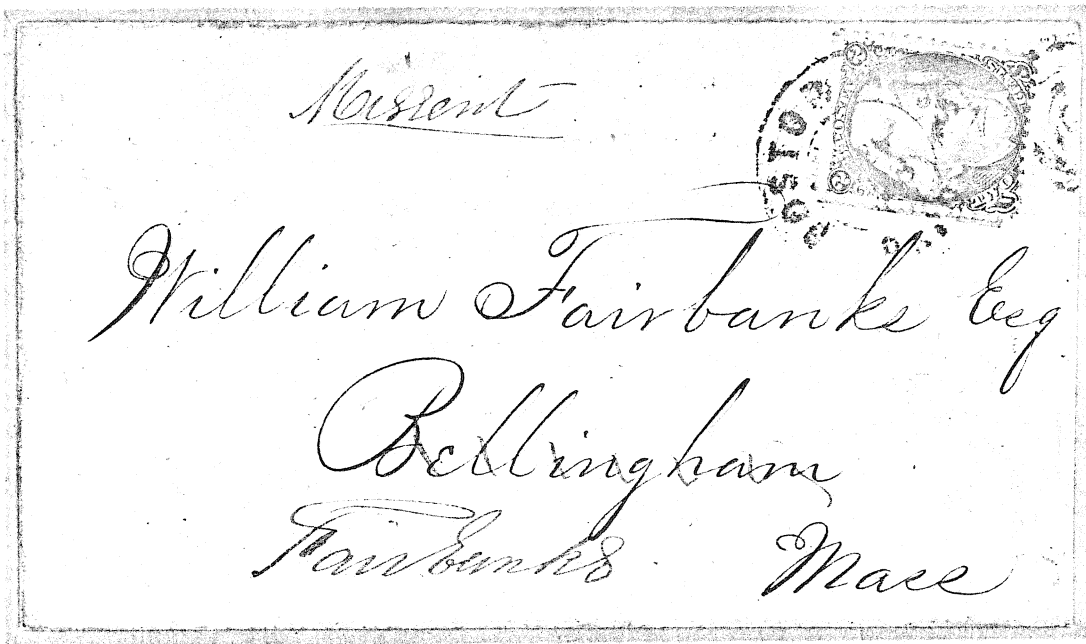 Missent
BOSTON
William Fairbanks Esq
Bellingham
Fairbanks
Mass